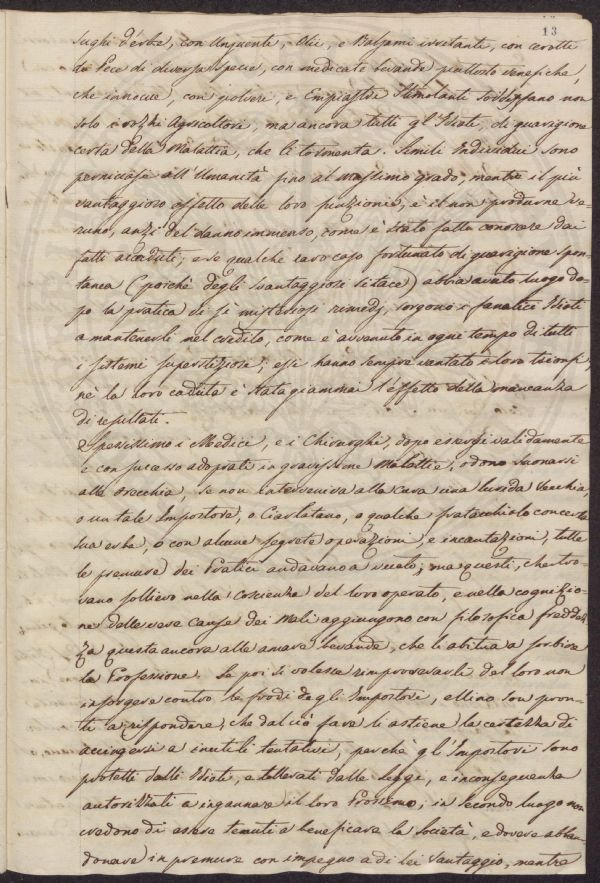 13
sughi d'erbe, con Unguente, Olii, e Balsami irritante, con cerotti
di Pece di diversa specie, con medicate bevande piuttosto venefiche,
che innocue, con polvere, e Empiastri stimolanti soddisfano non
solo i rozzi Agricoltori, ma ancora tutti gl'Idioti, di guarigione
certa della Malattia, che li tormenta. Simili Individui sono
perniciosi all'Umanità fino al massimo grado, mentre il più
vantaggioso effetto delle loro funzioni, è il non produrne ve-
runo, anzi del danno immenso, come è stato fatto conoscere dai
fatti accaduti; e se qualche raro caso fortunato di guarigione spon-
tanea (poichè degli svantaggiosi si tace) abbia avuto luogo do-
po la pratica di sì misteriosi rimedj, sorgono i fanatici Idioti
a mantenerli nel credito, come è avvenuto in ogni tempo di tutti
i sistemi superstiziosi; essi hanno sempre vantato i loro trionfi,
nè la loro caduta è stata giammai l'effetto della mancanza
di resultati.
Spessissimo i Medici, e i Chirurghi, dopo essersi validamente
e con successo adoprati in gravissime Malattie, odono suonarsi
alle orecchia, se non interveniva alla cura una lurida Vecchia,
o un tale Impostore, o Ciarlatano, o qualche fratacchiolo con certa
sua erba, o con alcune segrete operazioni, e incantazioni, tutte
le premure dei Pratici andavano a vuoto; ma questi, che tro-
vano sollievo nella coscienza del loro operato, e nella cognizio-
ne delle vere cause dei Mali aggiungono con filosofica fredde-
zza questa ancora alle amare bevande, che li abitua a sorbire
la Professione. Se poi si volesse rimproverarli del loro non
insorgere contro le frodi degli Impostori, ellino son pron-
ti a rispondere, che dal ciò fare li astiene la certezza di
accingersi a inutili tentativi, perchè gl'Impostori sono
protetti dalli Idioti, e tollerati dalle Leggi, e in conseguenza
autorizzati a ingannare il loro Prossimo; in secondo luogo non
credono di essere tenuti a beneficare la Società, e dovere abban
donare in premure con impegno a di lei vantaggio, mentre